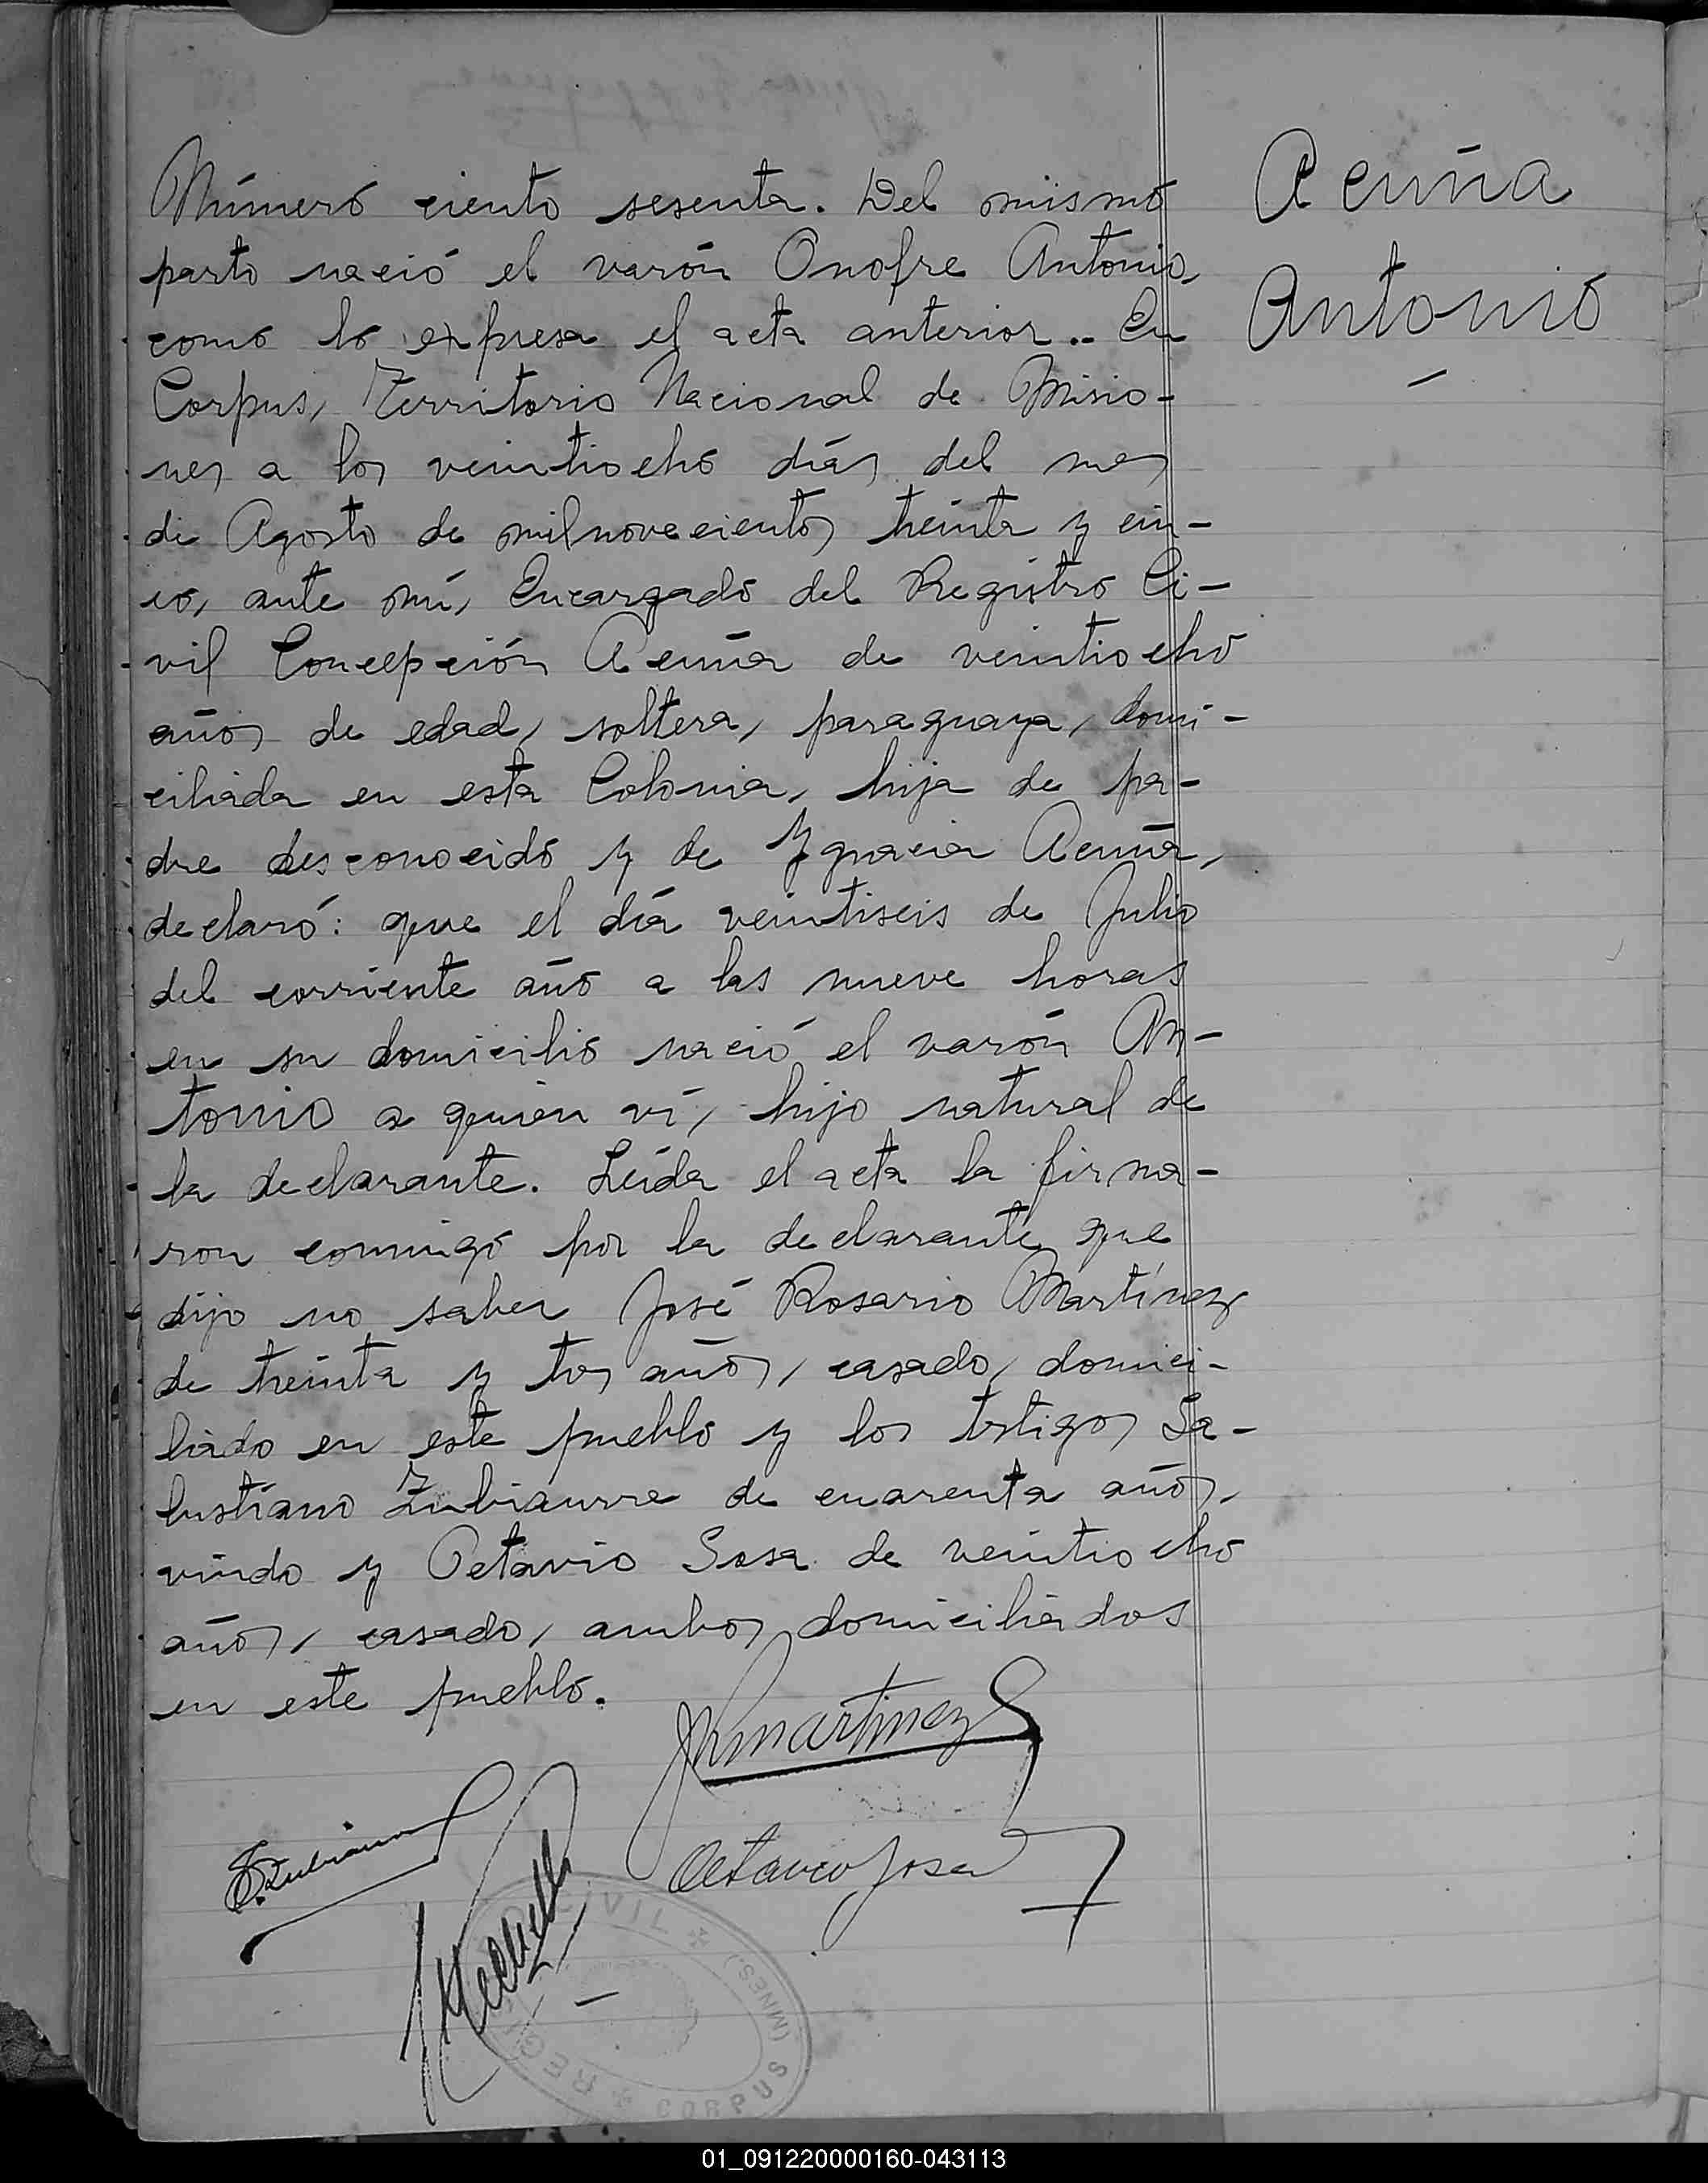 Acuña
Antonio
Número ciento sesenta. Del mismo
parto nació el varón Onofre Antonio,
como lo expresa el acta anterior.. En
Corpus, Territorio Nacional de Misio-
nes a los veintiocho días del mes
de Agosto de milnovecientos treinta y cin-
co, ante mí, Encargado del Registro Ci-
vil Concepción Acuña de veintiocho
años de edad, soltera, paraguaya, domi-
ciliada en esta Colonia, hija de pa-
dre desconocido y de Ygnacia Acuña,
declaró: que el día veintiseis de Julio
del corriente año a las nueve horas
en su domicilio nació el varón An-
tonio a quien ví, hijo natural de
la declarante. Leída el acta la firma-
ron conmigo por la declarante que
dijo no saber José Rosario Martínez
de treinta y tres años, casado, domici-
liado en este pueblo y los testigos Sa-
lustiano Zubiaurre de cuarenta años,
viudo y Octavio Sosa de veintiocho
años, casado, ambos domiciliados
en este pueblo.
JRMartinez
S. Zubiaurre
Octavio Sosa
REGISTRO CIVIL
CORPUS (MNES.)
01_091220000160-043113